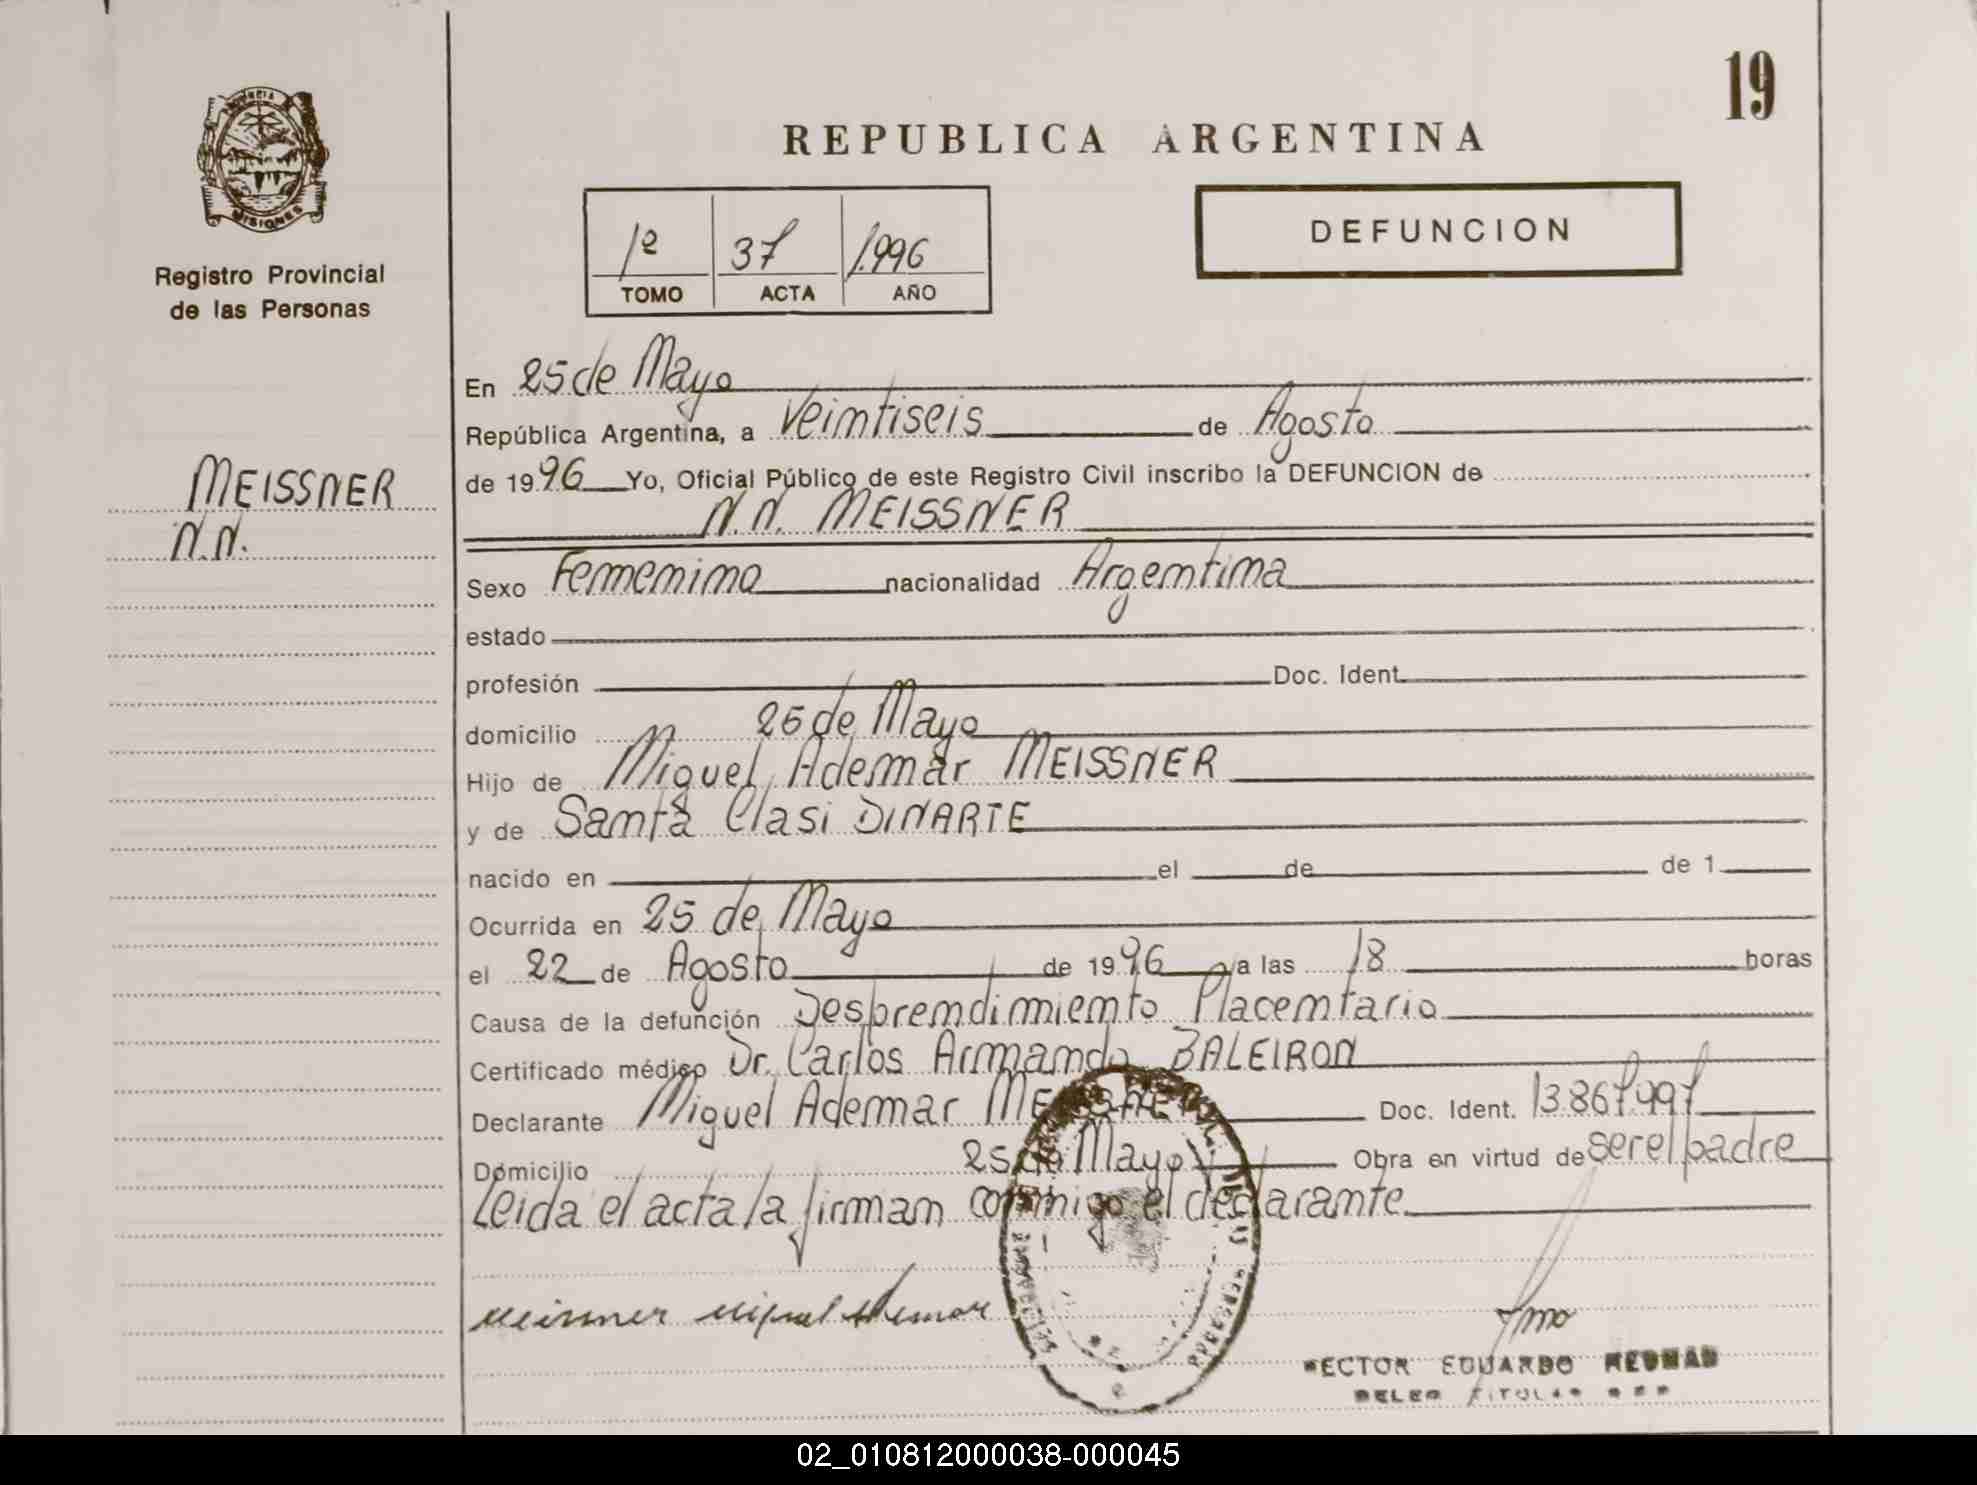 19
PROVINCIA
MISIONES
Registro Provincial
de las Personas
REPUBLICA ARGENTINA
1º 37 1.996
TOMO ACTA AÑO
DEFUNCION
MEISSNER
N.N.
En 25 de Mayo
República Argentina, a Veintiseis de Agosto
de 1996 Yo, Oficial Público de este Registro Civil inscribo la DEFUNCION de
N.N. MEISSNER
Sexo Femenino nacionalidad Argentina
estado
profesión Doc. Ident.
domicilio 25 de Mayo
Hijo de Miguel Ademar MEISSNER
y de Santa Clasi DINARTE
nacido en el de de 1
Ocurrida en 25 de Mayo
el 22 de Agosto de 1996 a las 18 horas
Causa de la defunción Desprendimiento Placentario
Certificado médico Dr. Carlos Armando BALEIRON
Declarante Miguel Ademar MEISSNER Doc. Ident. 13.867.997
Domicilio 25 de Mayo Obra en virtud de ser el padre
Leida el acta la firman conmigo el declarante
Meissner Miguel Ademar
HECTOR EDUARDO
02_010812000038-000045